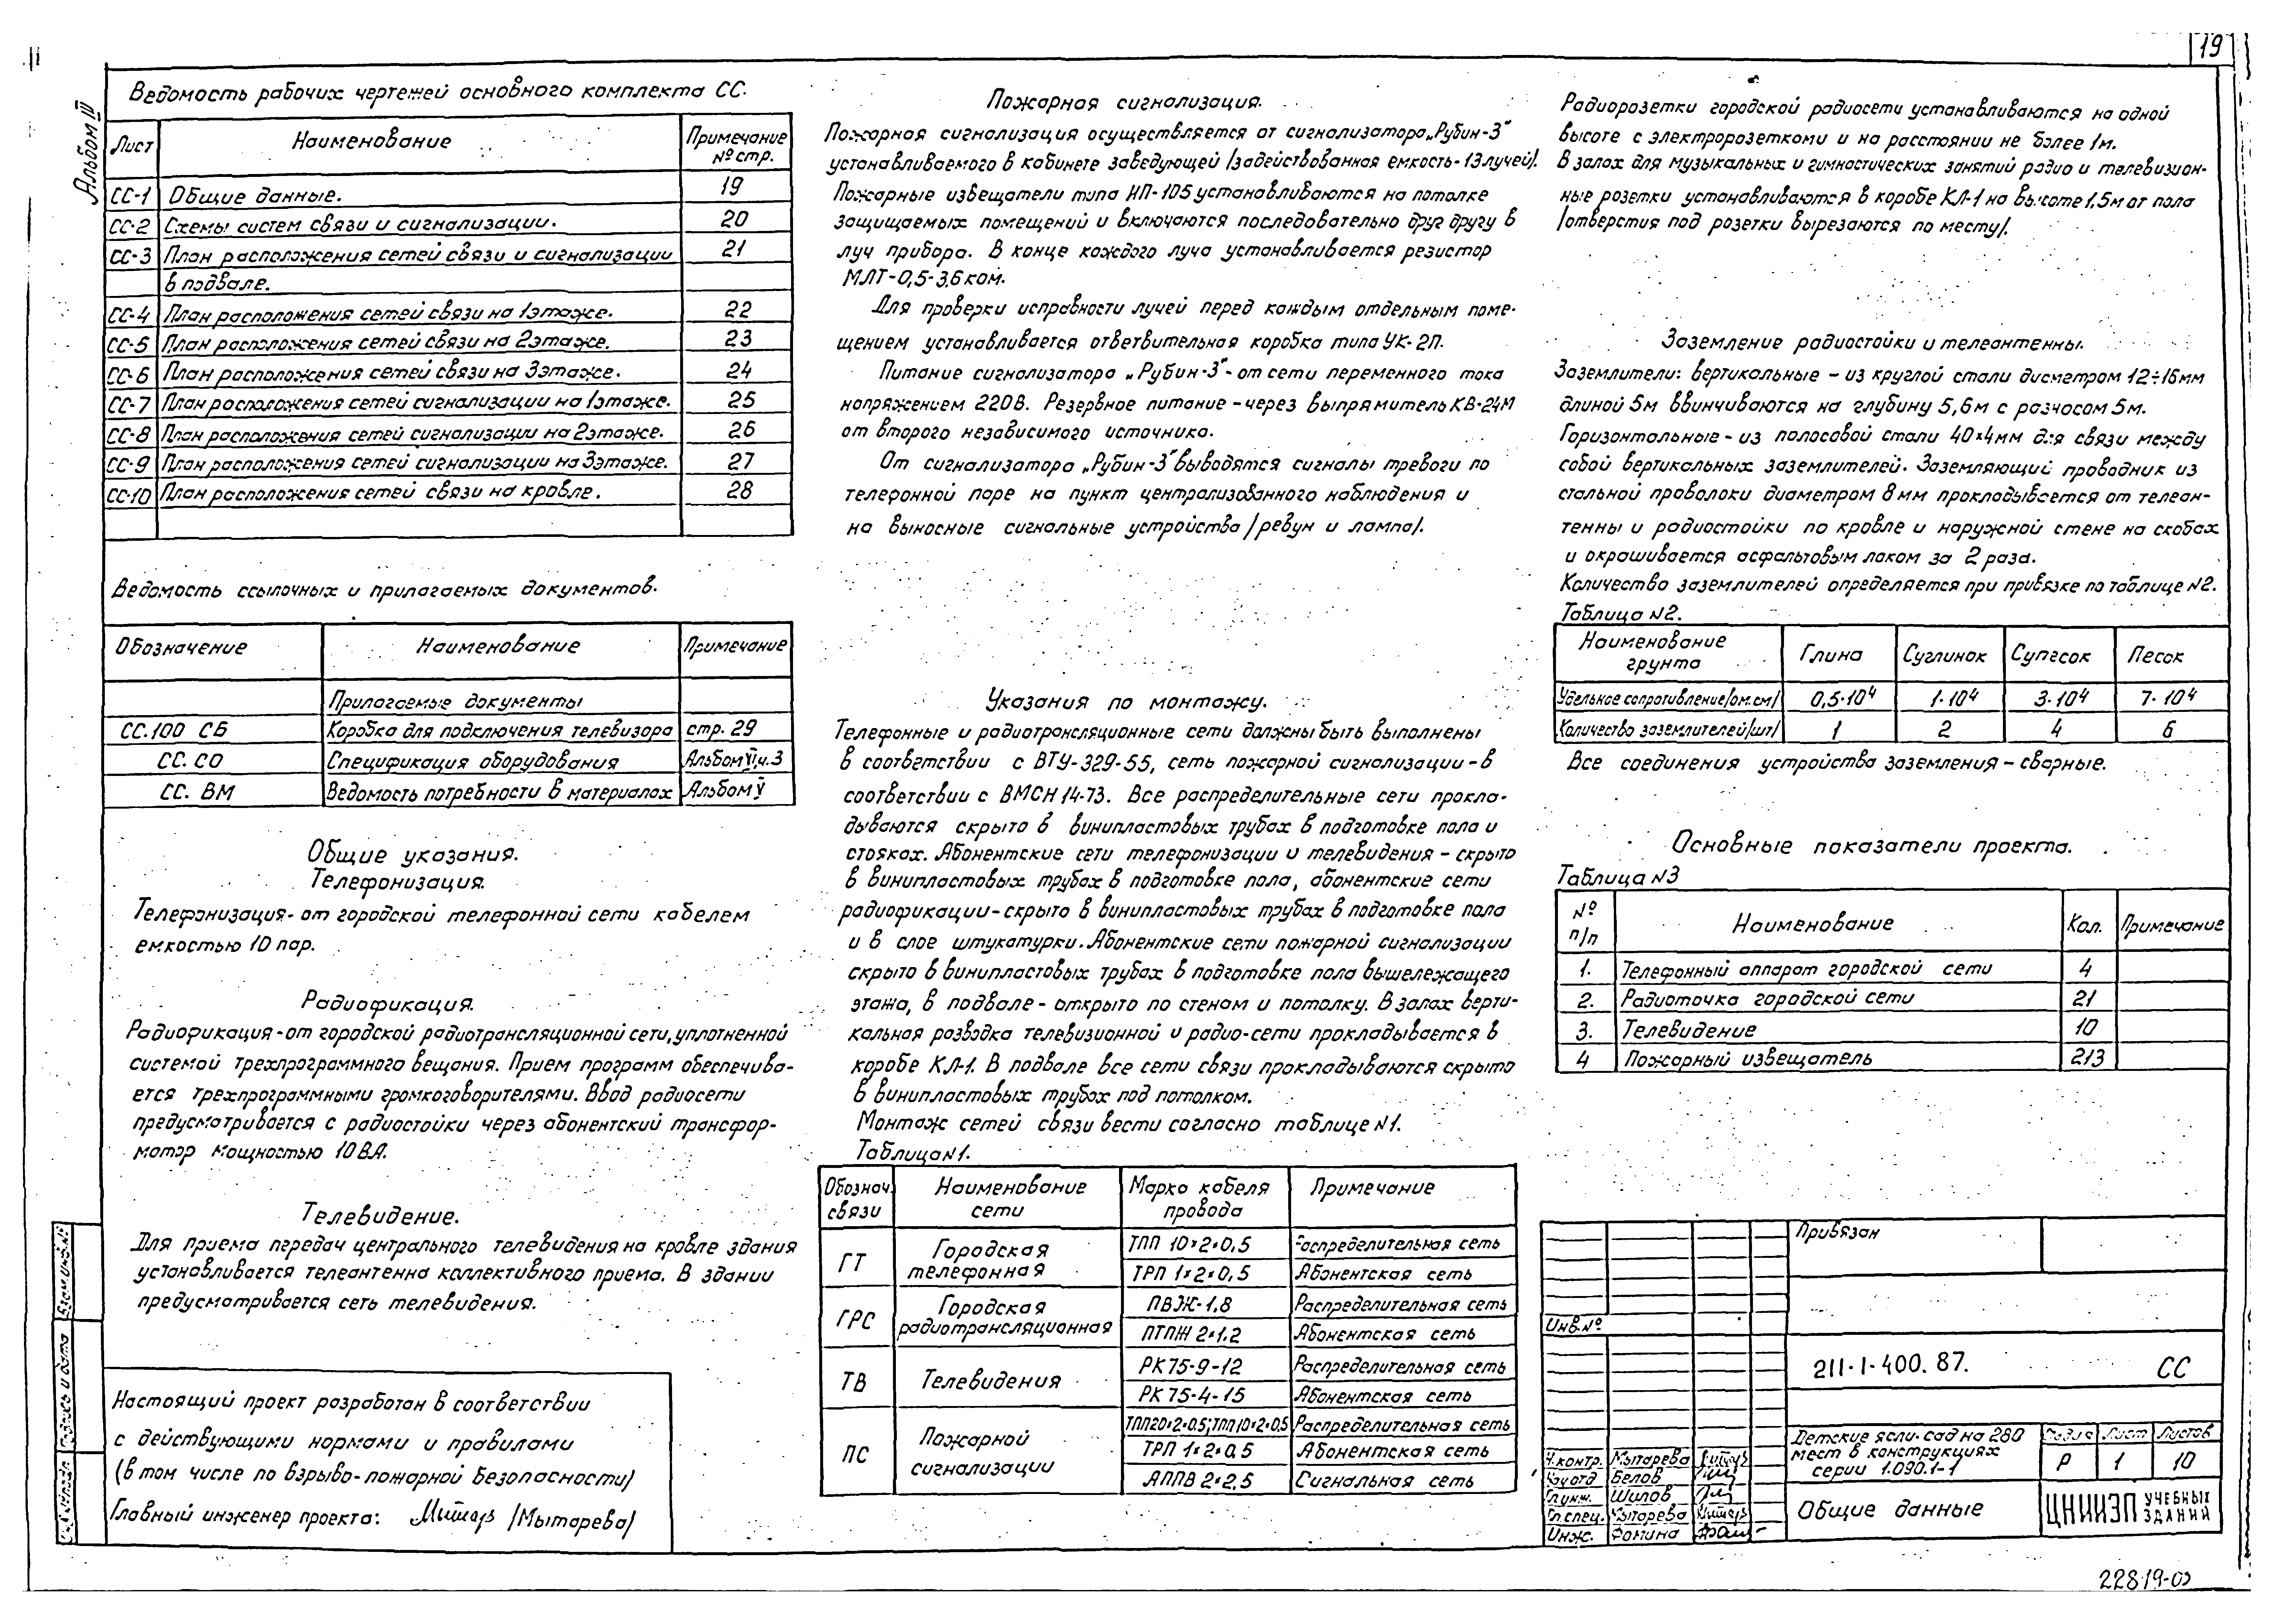 19
Альбом III
Ведомость рабочих чертежей основного комплекта СС.
Лист Наименование Примечание № стр.
СС-1 Общие данные. 19
СС-2 Схемы систем связи и сигнализации. 20
СС-3 План расположения сетей связи и сигнализации 21
в подвале.
СС-4 План расположения сетей связи на 1этаже. 22
СС-5 План расположения сетей связи на 2этаже. 23
СС-6 План расположения сетей связи на 3этаже. 24
СС-7 План расположения сетей сигнализации на 1этаже. 25
СС-8 План расположения сетей сигнализации на 2этаже. 26
СС-9 План расположения сетей сигнализации на 3этаже. 27
СС-10 План расположения сетей связи на кровле. 28
Ведомость ссылочных и прилагаемых документов.
Обозначение Наименование Примечание
Прилагаемые документы
СС.100 СБ Коробка для подключения телевизора стр. 29
СС. СО Спецификация оборудования Альбом VI, ч.3
СС. ВМ Ведомость потребности в материалах Альбом V
Общие указания.
Телефонизация.
Телефонизация - от городской телефонной сети кабелем
емкостью 10 пар.
Радиофикация.
Радиофикация - от городской радиотрансляционной сети, уплотненной
системой трехпрограммного вещания. Прием программ обеспечива-
ется трехпрограммными громкоговорителями. Ввод радиосети
предусматривается с радиостойки через абонентский трансфор-
матор мощностью 10 В.А.
Телевидение.
Для приема передач центрального телевидения на кровле здания
устанавливается телеантенна коллективного приема. В здании
предусматривается сеть телевидения.
Настоящий проект разработан в соответствии
с действующими нормами и правилами
(в том числе по взрыво-пожарной безопасности)
Главный инженер проекта: /Мытарева/
Пожарная сигнализация.
Пожарная сигнализация осуществляется от сигнализатора „Рубин-3"
устанавливаемого в кабинете заведующей /задействованная емкость - 13 лучей/.
Пожарные извещатели типа ИП-105 устанавливаются на потолке
защищаемых помещений и включаются последовательно друг другу в
луч прибора. В конце каждого луча устанавливается резистор
МЛТ-0,5-3,6 ком.
Для проверки исправности лучей перед каждым отдельным поме-
щением устанавливается ответвительная коробка типа УК-2П.
Питание сигнализатора „Рубин-3" - от сети переменного тока
напряжением 220В. Резервное питание - через выпрямитель КВ-24М
от второго независимого источника.
От сигнализатора „Рубин-3" выводятся сигналы тревоги по
телефонной паре на пункт централизованного наблюдения и
на выносные сигнальные устройства /ревун и лампа/.
Указания по монтажу.
Телефонные и радиотрансляционные сети должны быть выполнены
в соответствии с ВТУ-329-55, сеть пожарной сигнализации - в
соответствии с ВМСН 14-73. Все распределительные сети прокла-
дываются скрыто в винипластовых трубах в подготовке пола и
стояках. Абонентские сети телефонизации и телевидения - скрыто
в винипластовых трубах в подготовке пола, абонентские сети
радиофикации - скрыто в винипластовых трубах в подготовке пола
и в слое штукатурки. Абонентские сети пожарной сигнализации
скрыто в винипластовых трубах в подготовке пола вышележащего
этажа, в подвале - открыто по стенам и потолку. В залах верти-
кальная разводка телевизионной и радио-сети прокладывается в
коробе КЛ-1. В подвале все сети связи прокладываются скрыто
в винипластовых трубах под потолком.
Монтаж сетей связи вести согласно таблице N1.
Таблица N1.
Обознач. связи Наименование сети Марка кабеля провода Примечание
ГТ Городская телефонная ТПП 10×2×0,5 Распределительная сеть
ТРП 1×2×0,5 Абонентская сеть
ГРС Городская радиотрансляционная ПВЖ-1,8 Распределительная сеть
ПТПЖ 2×1,2 Абонентская сеть
ТВ Телевидения РК 75-9-12 Распределительная сеть
РК 75-4-15 Абонентская сеть
ПС Пожарной сигнализации ТПП20×2×0,5; ТПП10×2×0,5 Распределительная сеть
ТРП 1×2×0,5 Абонентская сеть
АППВ 2×2,5 Сигнальная сеть
Радиорозетки городской радиосети устанавливаются на одной
высоте с электророзетками и на расстоянии не более 1м.
В залах для музыкальных и гимнастических занятий радио и телевизион-
ные розетки устанавливаются в коробе КЛ-1 на высоте 1,5м от пола
/отверстия под розетки вырезаются по месту/.
Заземление радиостойки и телеантенны.
Заземлители: вертикальные - из круглой стали диаметром 12÷16мм
длиной 5м ввинчиваются на глубину 5,6м с разносом 5м.
Горизонтальные - из полосовой стали 40×4мм для связи между
собой вертикальных заземлителей. Заземляющий проводник из
стальной проволоки диаметром 8мм прокладывается от телеан-
тенны и радиостойки по кровле и наружной стене на скобах
и окрашивается асфальтовым лаком за 2 раза.
Количество заземлителей определяется при привязке по таблице N2.
Таблица N2.
Наименование грунта Глина Суглинок Супесок Песок
Удельное сопротивление/ом.см/ 0,5·10⁴ 1·10⁴ 3·10⁴ 7·10⁴
Количество заземлителей/шт/ 1 2 4 6
Все соединения устройства заземления - сварные.
Основные показатели проекта.
Таблица N3
№ п/п Наименование Кол. Примечание
1. Телефонный аппарат городской сети 4
2. Радиоточка городской сети 21
3. Телевидение 10
4 Пожарный извещатель 213
Привязан
Инв.№
211-1-400.87. СС
Детские ясли-сад на 280
мест в конструкциях
серии 1.090.1-1
Стадия Лист Листов
Р 1 10
Общие данные
ЦНИИЭП УЧЕБНЫХ ЗДАНИЙ
Н.контр. Мытарева
Нач.отд Белов
Гл.инж. Шилов
Гл.спец. Мытарева
Инж. Фомина
Взам.инв.№
Подпись и дата
22819-03